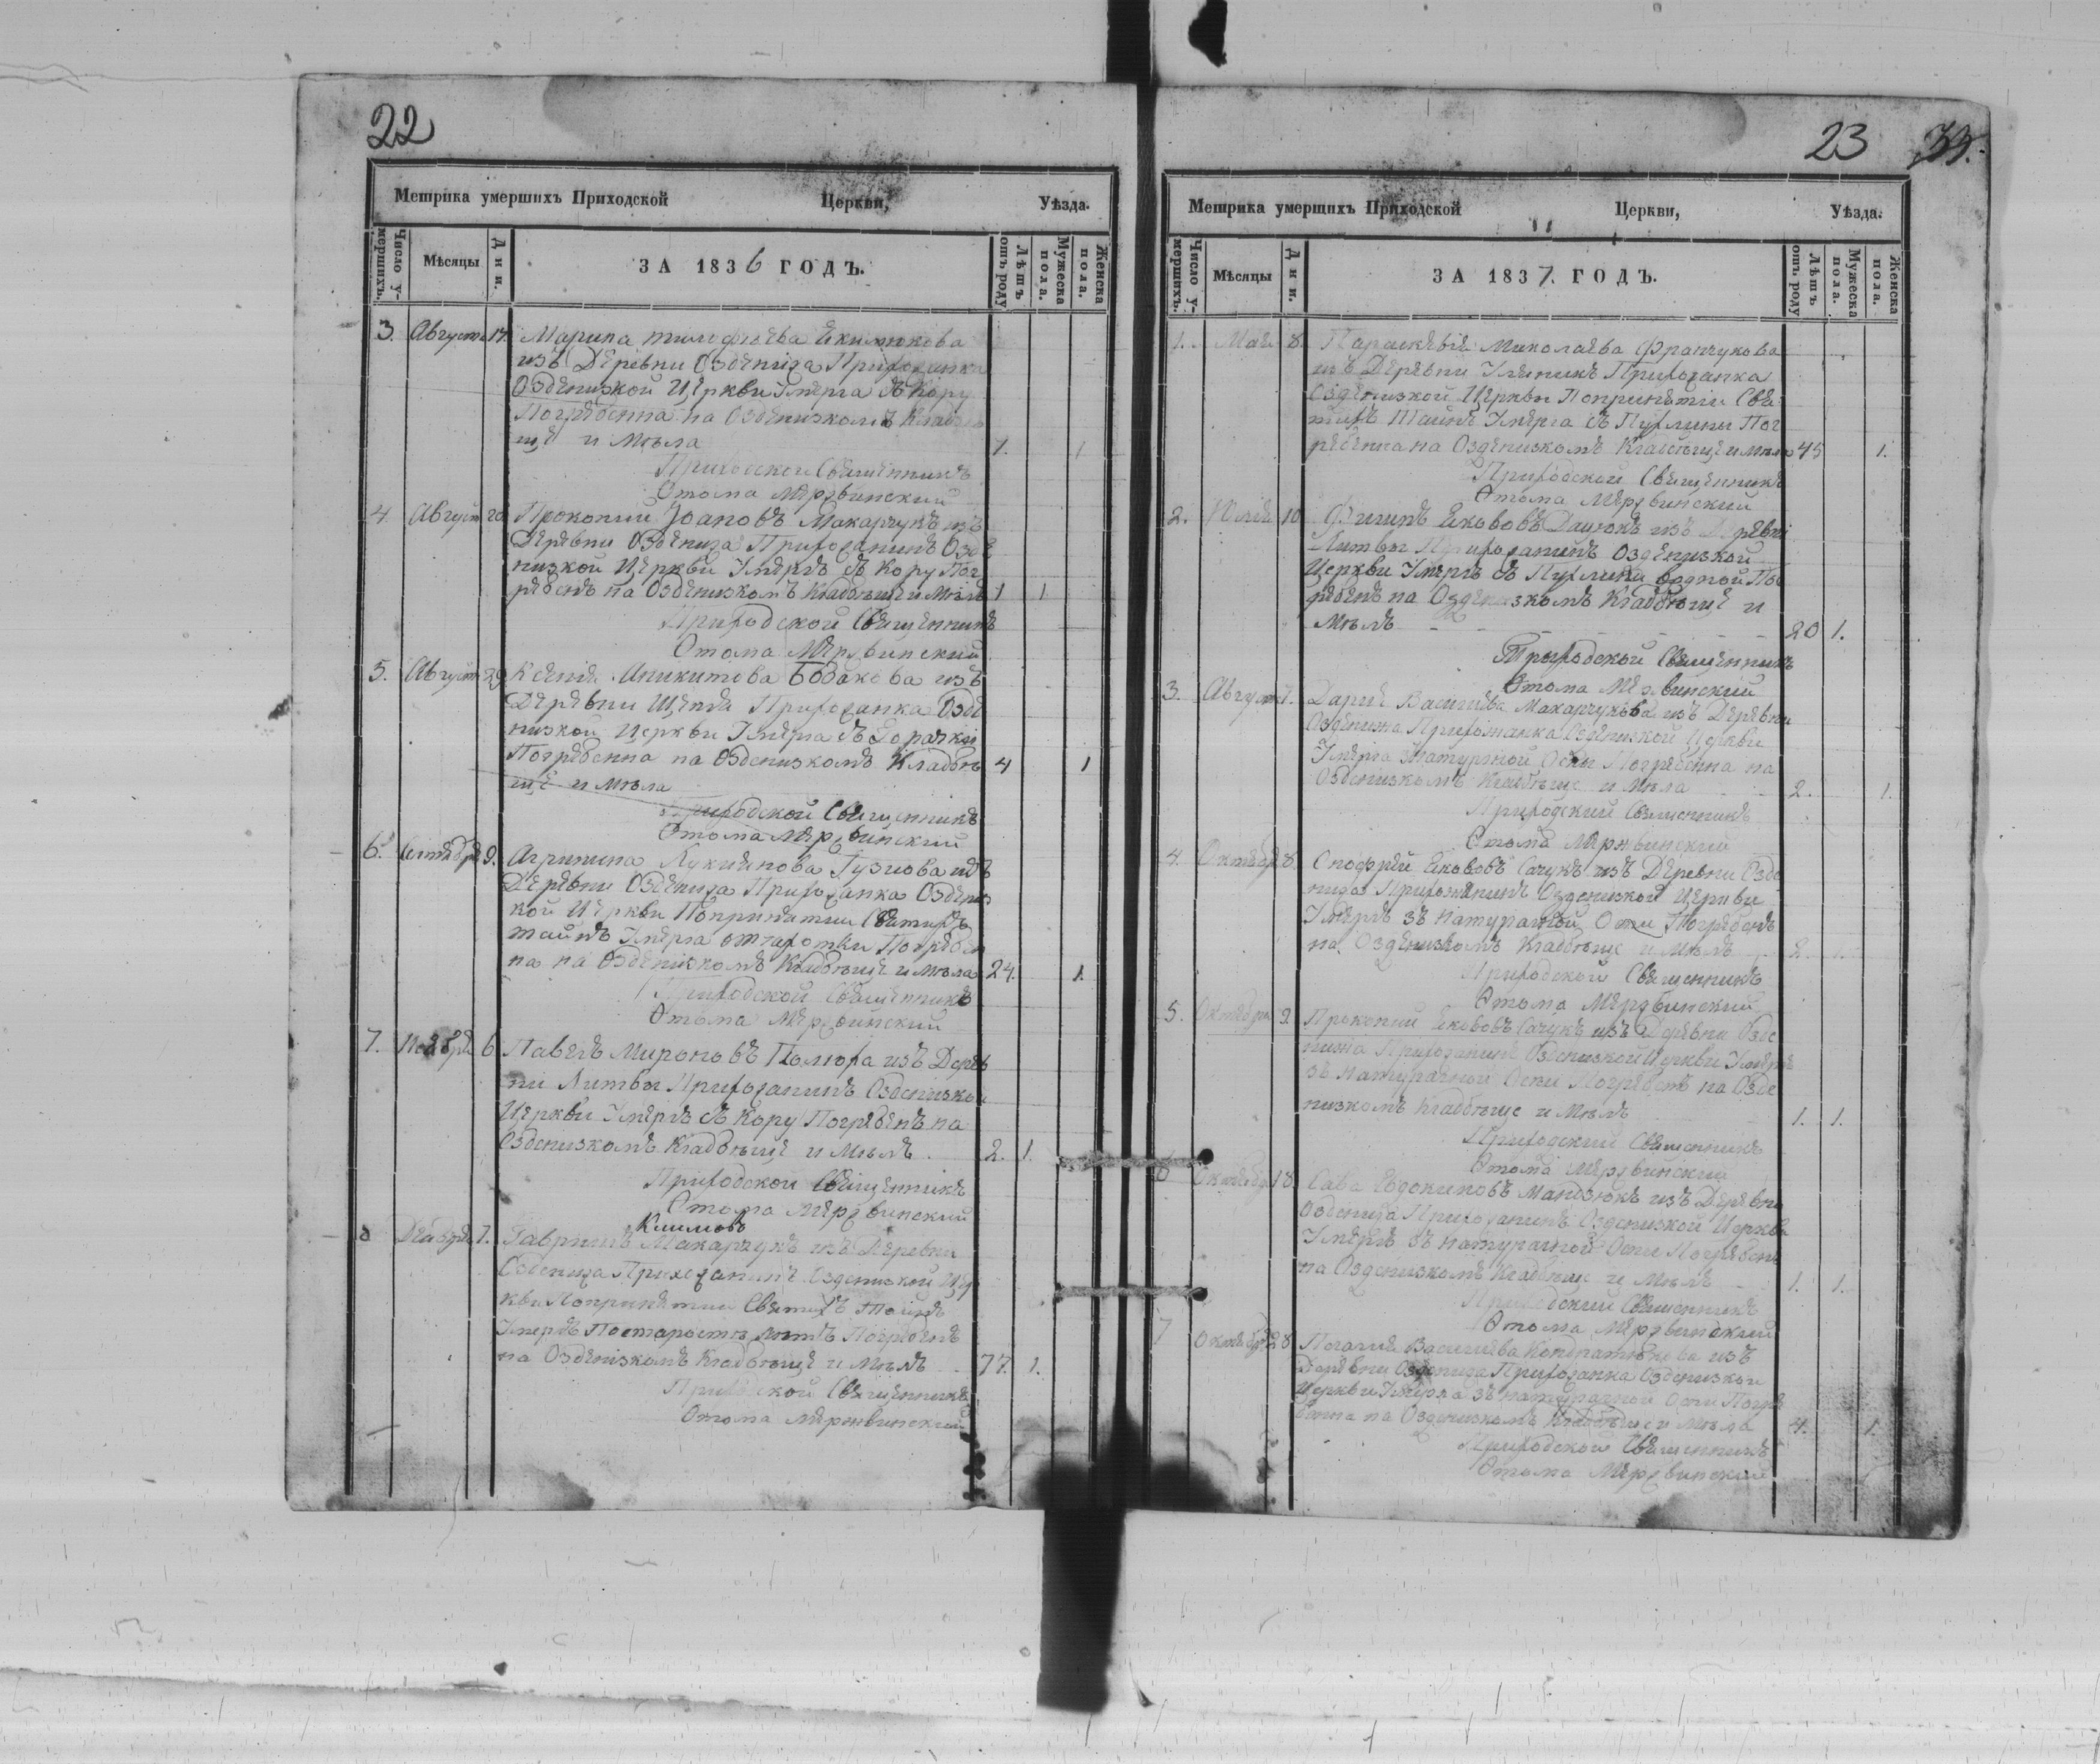 22
Метрика умершихъ Приходской Церкви, Уѣзда.
Число умершихъ. Мѣсяцы Дни. ЗА 1836 ГОДЪ. Лѣтъ отъ роду Мужеска пола. Женска пола.
3. Августа 17. Марина Екимюкова
изъ Деревни Озденижа Прихожанка
Озденизкой Церкви Умерла съ Кору
Погребенна на Озденизкомъ Кладбѣ
ще и Мѣла 1. 1
Приходской Священникъ
Ѳтома Мержвинский
4. Август 20 Прокопий Іоановъ Макарчукъ изъ
Деревни Озденижа Прихожанинъ Озде
низкой Церкви Умерлъ съ Кору Пог
ребенъ на Озденизкомъ Кладбѣще и Мѣлъ 1 1
Приходской Священникъ
Ѳтома Мержвинский
5. Август 29 Ксенія Аникитова Бодакова изъ
Деревни Прихожанка Озде
низкой Церкви Умерла съ Горачки
Погребенна на Озденизкомъ Кладбѣ 4 1
ще и Мѣла
Приходской Священникъ
Ѳтома Мержвинский
6. Сентебре 9. Агрипина Лукиянова изъ
Деревни Озденижа Прихожанка Оздениз
кой Церкви Попринятии Святихъ
тайнъ Умерла Погребен
на на Озденизкомъ Кладбѣще и мѣла 24. 1.
Приходской Священникъ
Ѳтома Мержвинский
7. Ноебре 6 Павелъ Мироновъ Полюха изъ Дерев
ни Литвы Прихожанинъ Озденизкой
Церкви Умерлъ съ Кору Погребенъ на
Озденизкомъ Кладбѣще и Мѣлъ. 2. 1.
Приходской Священникъ
Ѳтома Мержвинский
Климовъ
8 Декабре 7. Гаврилъ Макарчукъ изъ Деревни
Озденижа Прихожанинъ Озденизкой Цер
кви Попринятии Святихъ Тайнъ
Умерлъ Постарости лѣтъ Погребенъ
на Озденизкомъ Кладбѣще и Мѣлъ 77. 1.
Приходской Священникъ
Ѳтома Мержвинский
23
Метрика умерщихъ Приходской Церкви, Уѣзда.
Число умершихъ. Мѣсяцы Дни. ЗА 1837. ГОДЪ. Лѣтъ отъ роду Мужеска пола. Женска пола.
1. Мая 8. Параскевія Миколаева Франчукова
изъ Деревни Прихожанка
Озденизкой Церкви Попринятии Свя
тихъ Таинъ Умерла съ Пухлины Пог
ребенна на Озденизкомъ Кладбѣще и мѣла 45 1.
Приходской Священникъ
Ѳтома Мержвинский
2. Юлія 10 Филипъ Екововъ Дацюкъ изъ Деревни
Литвы Прихожанинъ Озденизкой
Церкви Умерлъ съ Пухлини водной Пог
ребенъ на Озденизкомъ Кладбѣще и
Мѣлъ 20 1.
Приходской Священникъ
Ѳтома Мержвинский
3. Август 7. Дария Василѣва Макарчукова изъ Деревни
Озденижа Прихожанка Озденизкой Церкви
Умерла знатуральной Оспы Погребенна на
Озденизкомъ Кладбѣще и Мѣла 2. 1.
Приходский Священникъ
Ѳтома Мержвинский
4. Октебре 8. Онофрей Екововъ Сачукъ изъ Деревни Озде
нижа Прихожанинъ Озденизкой Церкви
Умерлъ зъ натуральной Оспи Погребенъ
на Озденизкомъ Кладбѣще и Мѣлъ 2. 1.
Приходской Священникъ
Ѳтома Мержвинский
5. Октебри 9. Прокопий Екововъ Сачукъ изъ Деревни Озде
нижа Прихожанинъ Озденизкой Церкви Умерлъ
зъ натуральной Оспи Погребенъ на Озде
низкомъ Кладбѣще и Мѣлъ 1. 1.
Приходский Священникъ
Ѳтома Мержвинский
6 Октебр 18. Сава Евдокимовъ Мандзюкъ изъ Деревни
Озденижа Прихожанинъ Озденизкой Церкви
Умерлъ зъ натуральной Оспи Погребенъ
на Озденизкомъ Кладбѣще и Мѣлъ 1. 1.
Приходский Священникъ
Ѳтома Мержвинский
7 Октебр 28 Василиева Кондратюкова изъ
Деревни Озденижа Прихожанка Озденизкой
Церкви Умерла зъ натуральной Оспи Погре
бенна на Озденизкомъ Кладбѣще и Мѣла 4. 1.
Приходской Священникъ
Ѳтома Мержвинский